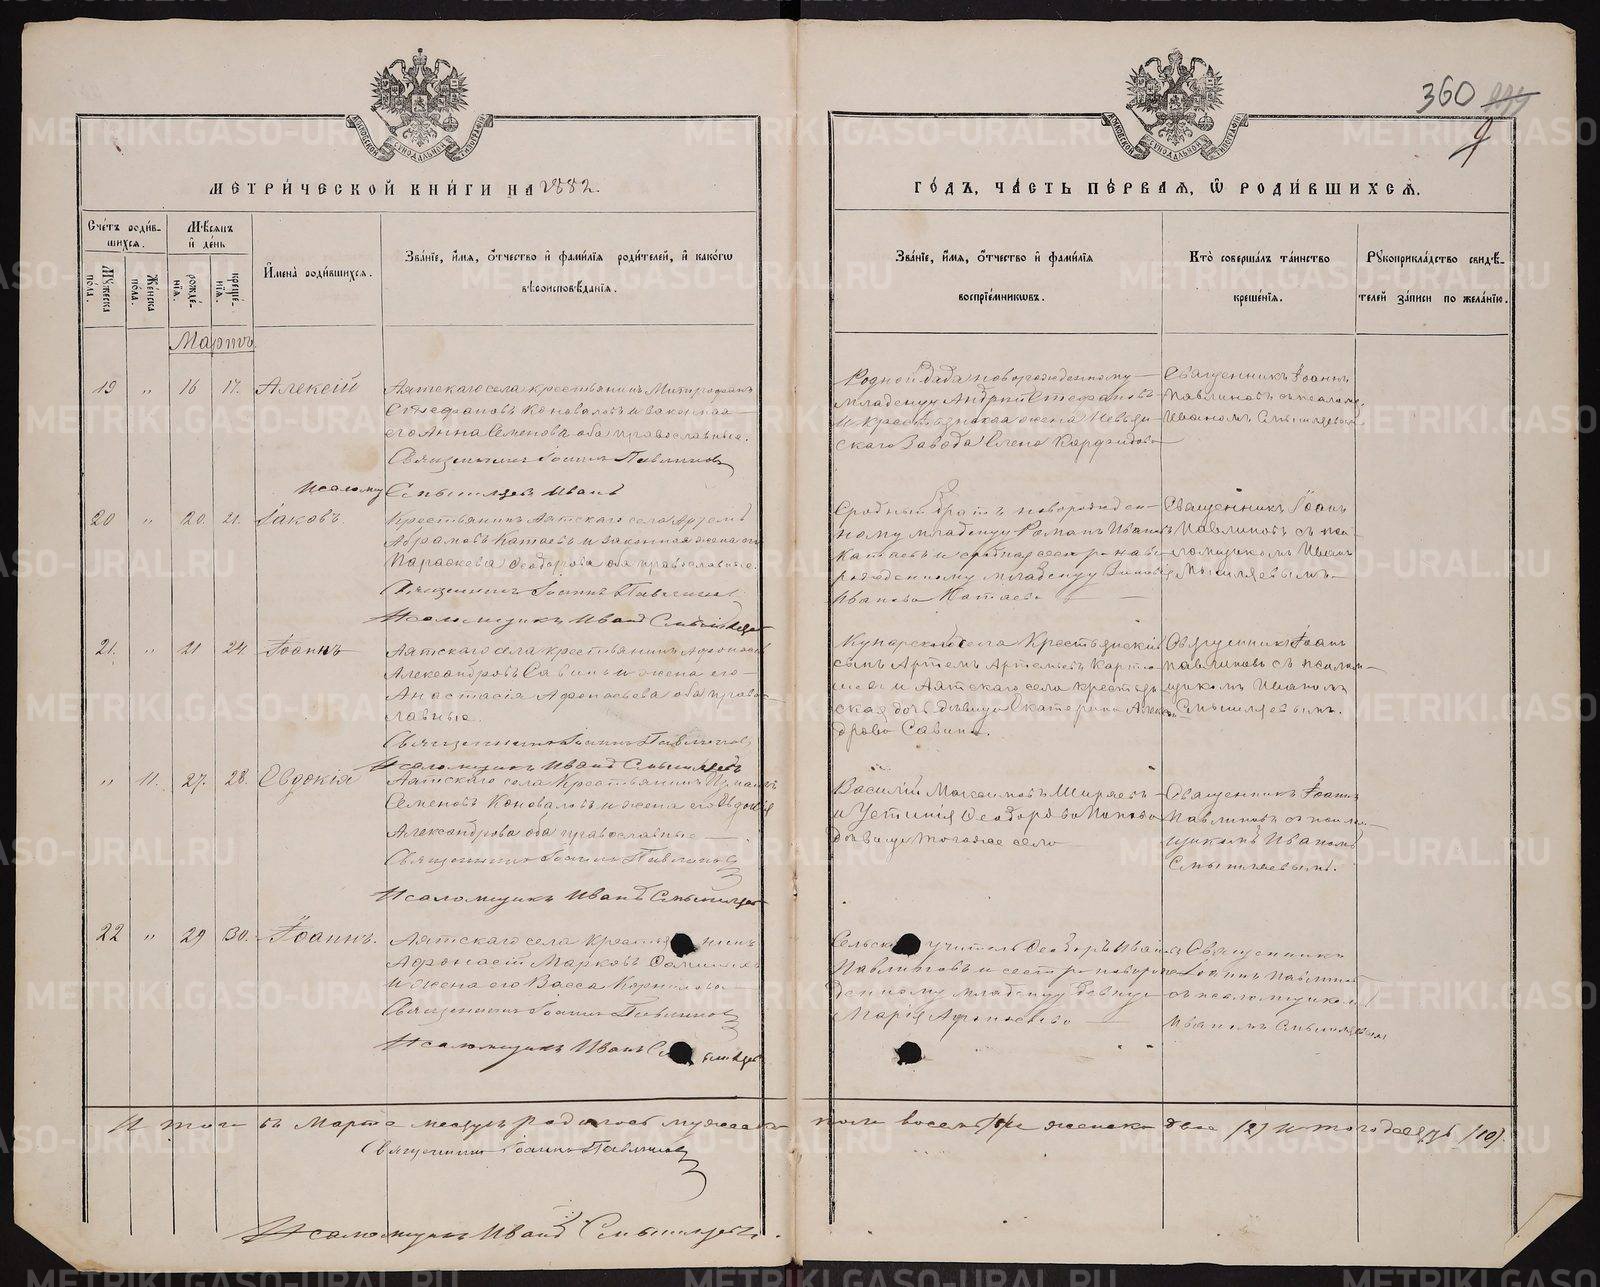 360
9
МЕТРИ́ЧЕСКОЙ КНИ́ГИ НА 1882.
ГО́ДЪ, ЧА́СТЬ ПЕ́РВАЯ, Ѡ РОДИ́ВШИХСЯ.
Сче́тъ роди́в-
шихся.
Мѣ́сяцъ
и де́нь
Мꙋ́жеска
по́ла.
Же́нска
по́ла.
рожде́-
нїя.
креще́-
нїя.
И҆мена̀ роди́вшихся.
Зва́нїе, и҆́мя, о҆́тчество и҆ фами́лїя роди́телей, и҆ како́гѡ
вѣроисповѣ́данїя.
Зва́нїе, и҆́мя, о҆́тчество и҆ фами́лїя
воспрїе́мникѡвъ.
Кто̀ соверша́лъ та́инство
креще́нїя.
Рꙋкоприкла́дство свидѣ́-
телей за́писи по жела́нїю.
Мартъ
19 " 16 17. Алексій
Аятскаго села крестьянинъ Митрофанъ
Стефановъ Коноваловъ и законная
его Анна Семенова оба православные.
Священникъ Іоаннъ Павлиновъ
Псаломщ Смышляевъ Иванъ
Родной дядя новорожденному
младенцу Андрей Стефановъ
и крестьянская жена Невьян
скаго Завода Елена
Священникъ Іоаннъ
Павлиновъ съ псалом
Иваномъ Смышляевым
20 " 20. 21. Іаковъ.
Крестьянинъ Аятскаго села Артемъ
Абрамовъ Катаевъ и законная жена его
Параскева Ѳеодорова оба православные.
Священникъ Іоаннъ Павлиновъ
Псаломщикъ Иванъ Смышляевъ
Сродный братъ новорожден-
ному младенцу Романъ Ивановъ
Катаевъ и сродная сестра ново-
рожденному младенцу
Иванова Катаева
Священникъ Іоаннъ
Павлиновъ съ пса-
ломщикомъ Иван
Смышляевымъ
21. " 21 24 Іоаннъ
Аятскаго села крестьянинъ Афонасій
Александровъ Савинъ и жена его
Анастасія Афонасьева оба право-
славные.
Священникъ Іоаннъ Павлиновъ
Псаломщикъ Иванъ Смышляевъ
села Крестьянскій
сынъ Артемъ Артемьевъ
и Аятскаго села крестьян
ская дочь девица Екатерина Алексан
дрова Савина.
Священникъ Іоанн
Павлиновъ съ псалом-
щикомъ Иваномъ
Смышляевымъ.
" 11. 27. 28. Евдокія
Аятскаго села Крестьянинъ
Семеновъ Коноваловъ и жена его Евдокія
Александрова оба православные
Священникъ Іоаннъ Павлиновъ
Псаломщикъ Иванъ Смышляевъ
Василій Максимовъ Ширяевъ
и Устинія Ѳеодорова Попова
девица того же села
Священникъ Іоаннъ
Павлиновъ съ псалом-
щикомъ Иваномъ
Смышляевымъ.
22 " 29 30. Іоаннъ.
Аятскаго села Крестьянинъ
Афонасій Марковъ
и жена его Васса Корнилова
Священникъ Іоаннъ Павлиновъ
Псаломщикъ Иванъ Смышляевъ
Сельскій учитель Ѳеодоръ Иван
Павлиновъ и сестра новорож
денному младенцу девица
Марія Афонасьева
Священникъ
Іоаннъ Павлинов
съ псаломщиком
Иваномъ Смышляевымъ
Итого въ Мартѣ месяцѣ родилось мужеска пола восемь (8) женска два (2) итого десять (10).
Священникъ Іоаннъ Павлиновъ
Псаломщикъ Иванъ Смышляевъ.
METRIKI.GASO-URAL.RU